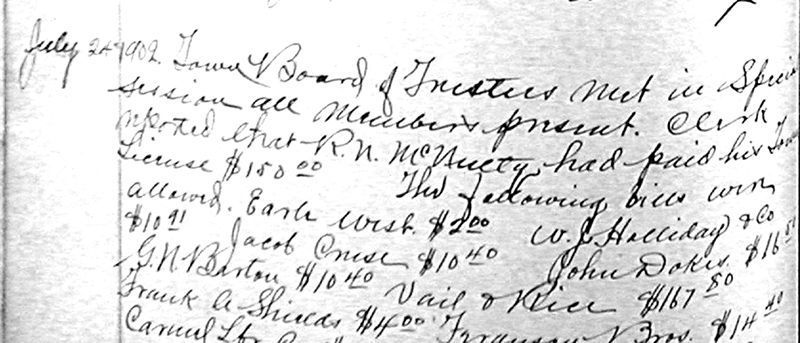 July 24 1902. Town Board of Trustees met in
session all members present. Clerk
reported that R.N. McNutty had paid his Town
License $150 00 The following bills were
allowed. Earl West. $2 00 W.J. Holliday & Co
$10 91 Jacob Cruse $10 40 John Dokes $16
G.N. Barton $10 40 Vail & Rice $167 80
Frank A Shields $4 00 Ferguson Bros. $14 40
Carmel Lbr